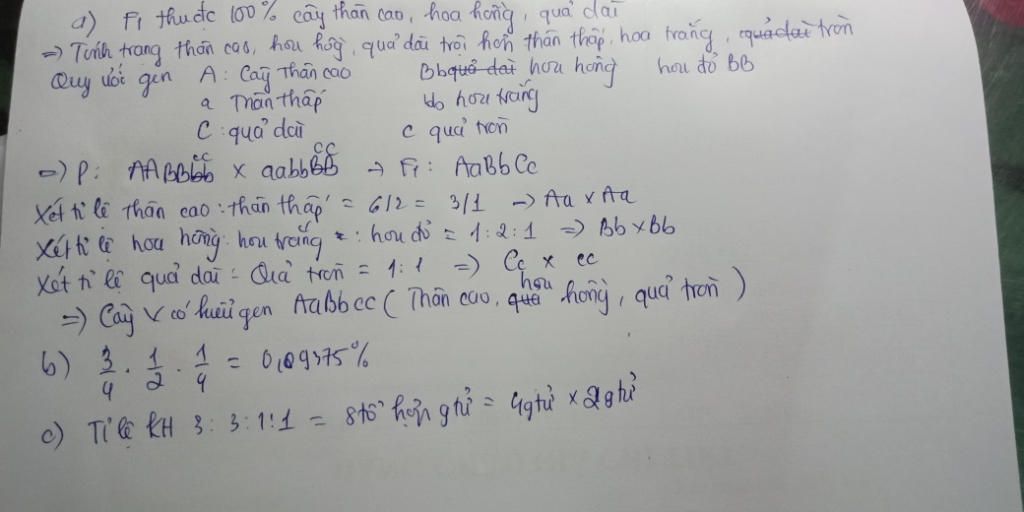 a) F1 thuđc 100% cây thân cao, hoa hồng, quả dài
=> Tính trạng thân cao, hoa hồng, quả dài trội hơn thân thấp, hoa trắng, quả dài tròn
Quy ước gen A: Cây thân cao Bb quả dài hoa hồng hoa đỏ BB
a Thân thấp bb hoa trắng
C: quả dài c quả tròn
=> P: AABBbb cc x aabbBB CC -> F1: AaBbCc
Xét tỉ lệ thân cao: thân thấp = 6/2 = 3/1 -> Aa x Aa
Xét tỉ lệ hoa hồng: hoa trắng : hoa đỏ = 1:2:1 => Bb x Bb
Xét tỉ lệ quả dài: Quả tròn = 1:1 => Cc x cc
=> Cây V có kiểu gen AaBbcc (Thân cao, quả hoa hồng, quả tròn)
b) 3/4 . 1/2 . 1/4 = 0,09375%
c) Tỉ lệ KH 3:3:1:1 = 8 tổ hợp gtử = 4gtử x 2gtử